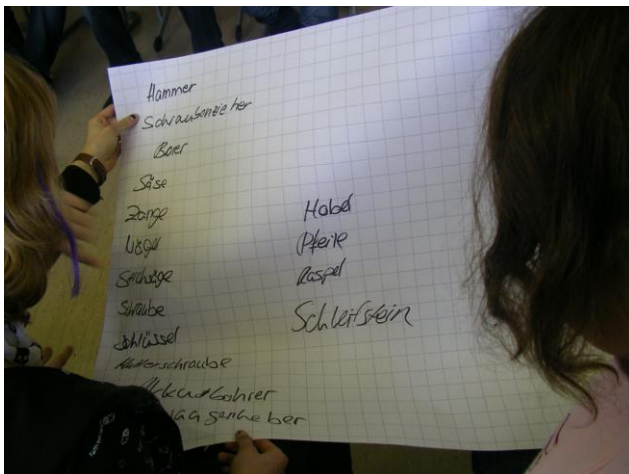 Hammer
Schraubenzieher
Borer
Säge
Zange
Nägel
Schraube
Schlüssel
Mutterschraube
bohrer
Wagenheber
Hobel
Pfeile
Raspel
Schleifstein